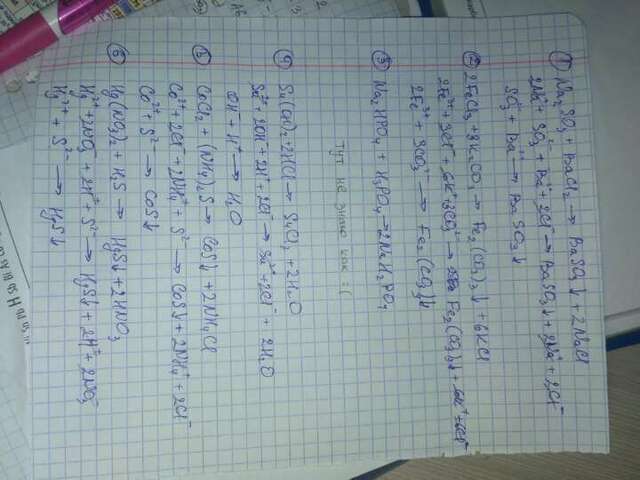 ① Na₂SO₃ + BaCl₂ → BaSO₃↓ + 2NaCl
2Na⁺ + SO₃²⁻ + Ba²⁺ + 2Cl⁻ → BaSO₃↓ + 2Na⁺ + 2Cl⁻
SO₃²⁻ + Ba²⁺ → BaSO₃↓
② 2FeCl₃ + 3K₂CO₃ → Fe₂(CO₃)₃↓ + 6KCl
2Fe³⁺ + 3CO₃²⁻ → Fe₂(CO₃)₃↓
③ Na₂HPO₄ + H₃PO₄ → 2NaH₂PO₄
тут не знаю как :(
④ Sn(OH)₂ + 2HCl → SnCl₂ + 2H₂O
OH⁻ + H⁺ → H₂O
⑤ CoCl₂ + (NH₄)₂S → CoS↓ + 2NH₄Cl
Co²⁺ + 2Cl⁻ + 2NH₄⁺ + S²⁻ → CoS↓ + 2NH₄⁺ + 2Cl⁻
Co²⁺ + S²⁻ → CoS↓
⑥ Hg(NO₃)₂ + H₂S → HgS↓ + 2HNO₃
Hg²⁺ + 2NO₃⁻ + 2H⁺ + S²⁻ → HgS↓ + 2H⁺ + 2NO₃⁻
Hg²⁺ + S²⁻ → HgS↓